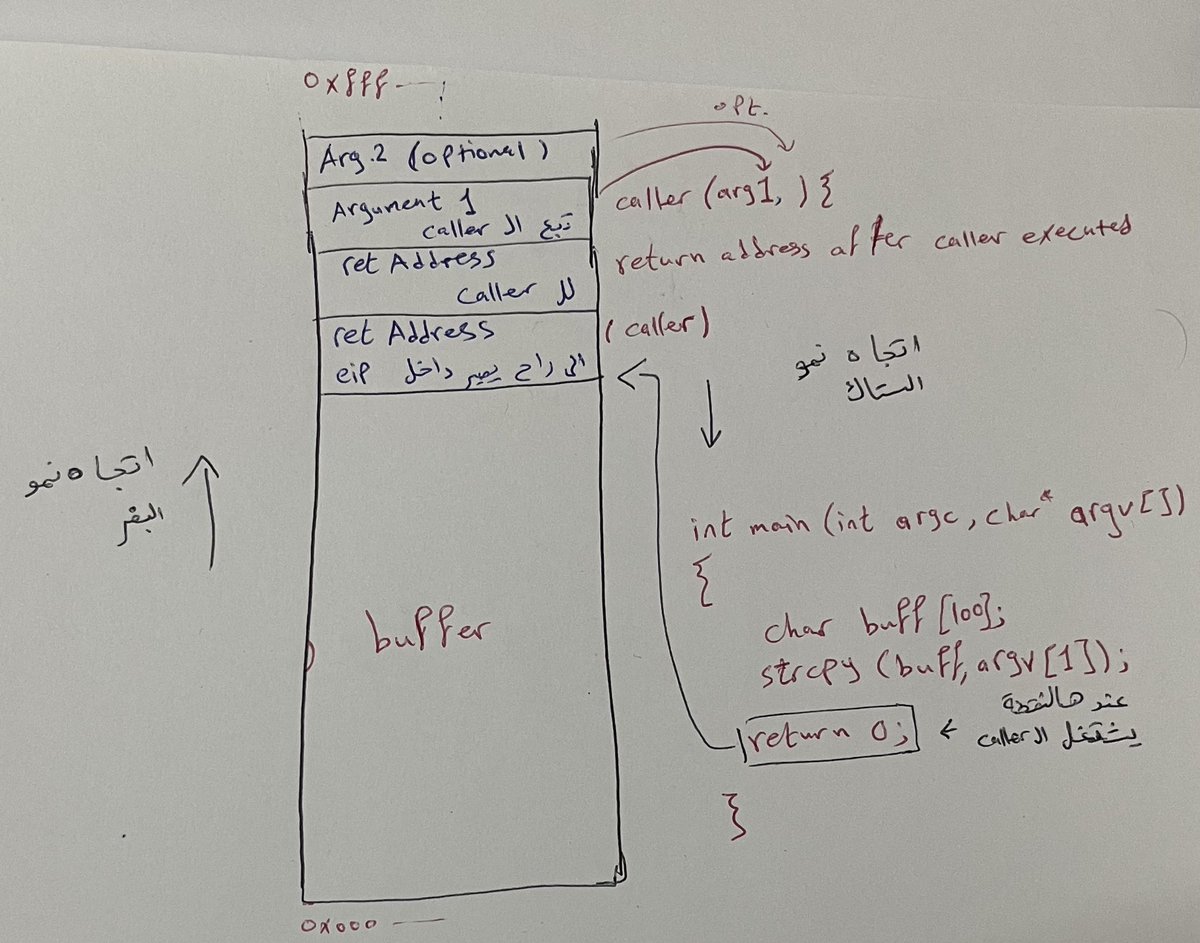 0xfff
opt.
Arg.2 (optional)
Argument 1
تبع الـ caller
caller (arg1, ) {
ret Address
للـ caller
return address after caller executed
ret Address
الى راح يصير داخل eip
(caller)
اتجاه نمو
الستاك
اتجاه نمو
البفر
buffer
int main (int argc, char* argv[])
{
char buff [100];
strcpy (buff, argv[1]);
return 0;
عند هالنقطة
يشتغل الـ caller
}
0x000